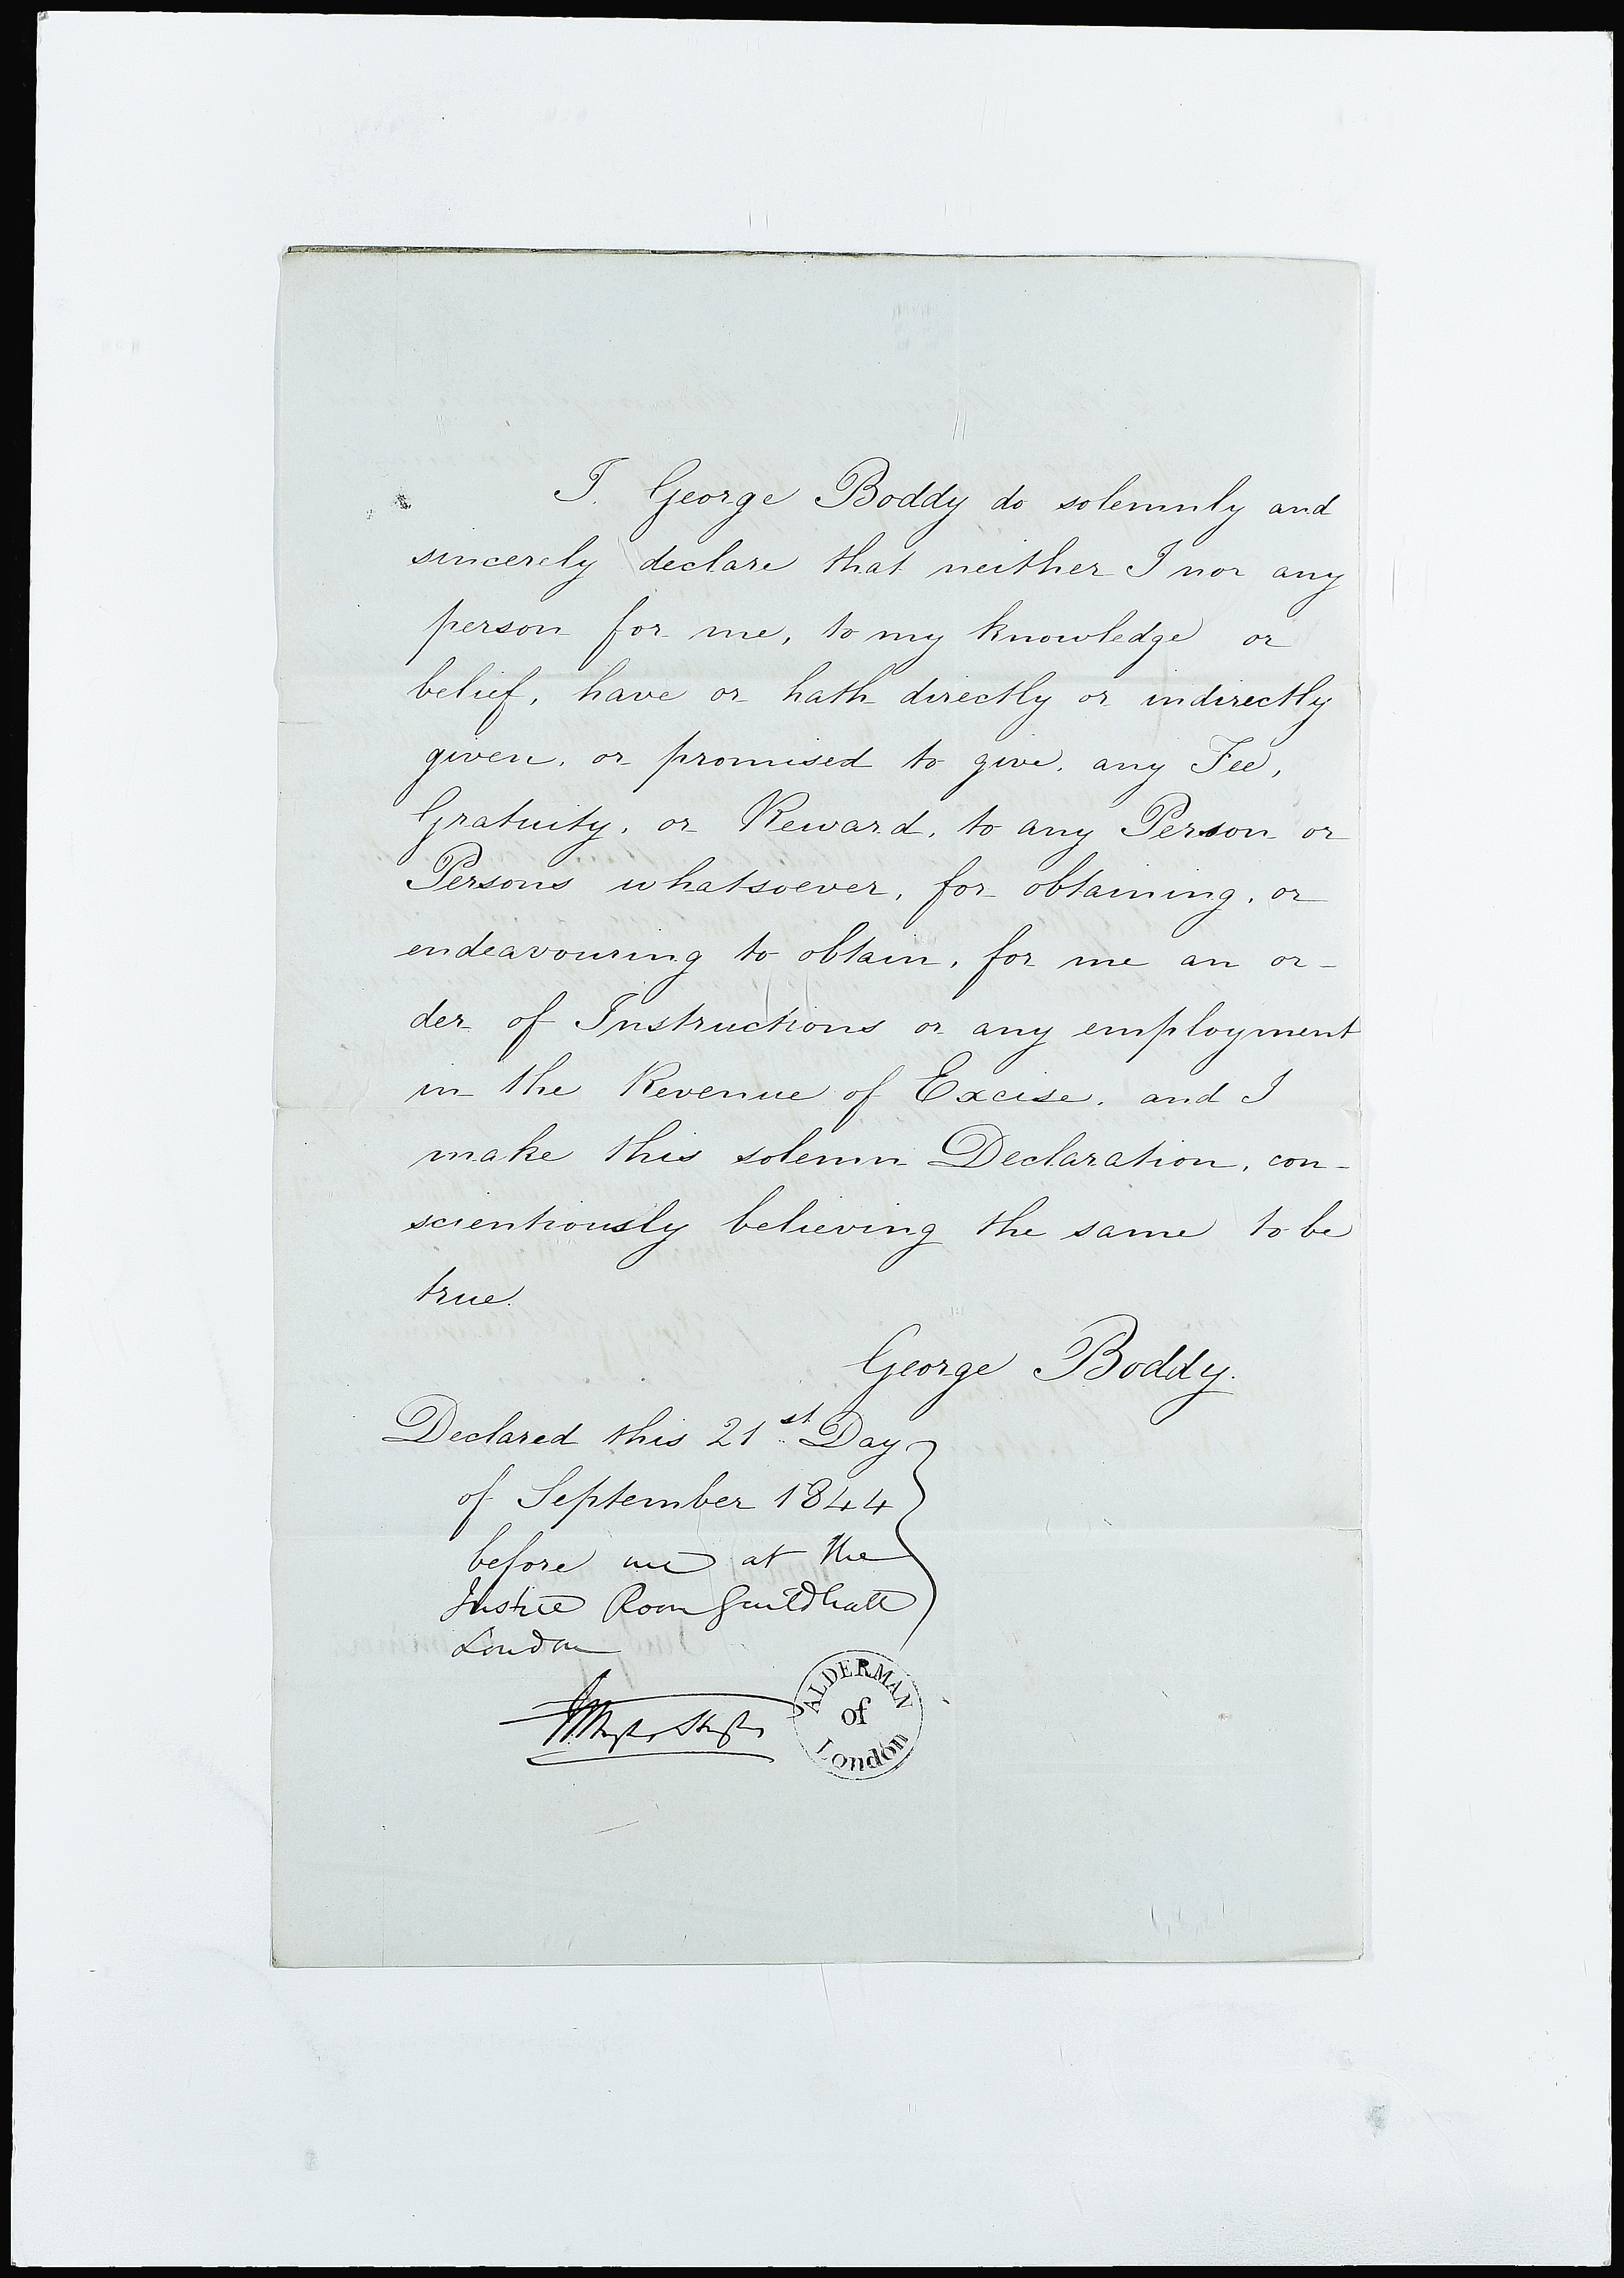 I. George Boddy do solemnly and
sincerely declare that neither I nor any
person for me, to my knowledge or
belief, have or hath directly or indirectly
given, or promised to give, any Fee,
Gratuity, or Reward, to any Person or
Persons whatsoever, for obtaining, or
endeavouring to obtain, for me an or-
der of Instructions or any employment
in the Revenue of Excise, and I
make this solemn Declaration, con-
scientiously believing the same to be
true.
George Boddy.
Declared this 21st Day
of September 1844
before me at the
Justice Room Guildhall
London
ALDERMAN
of
London